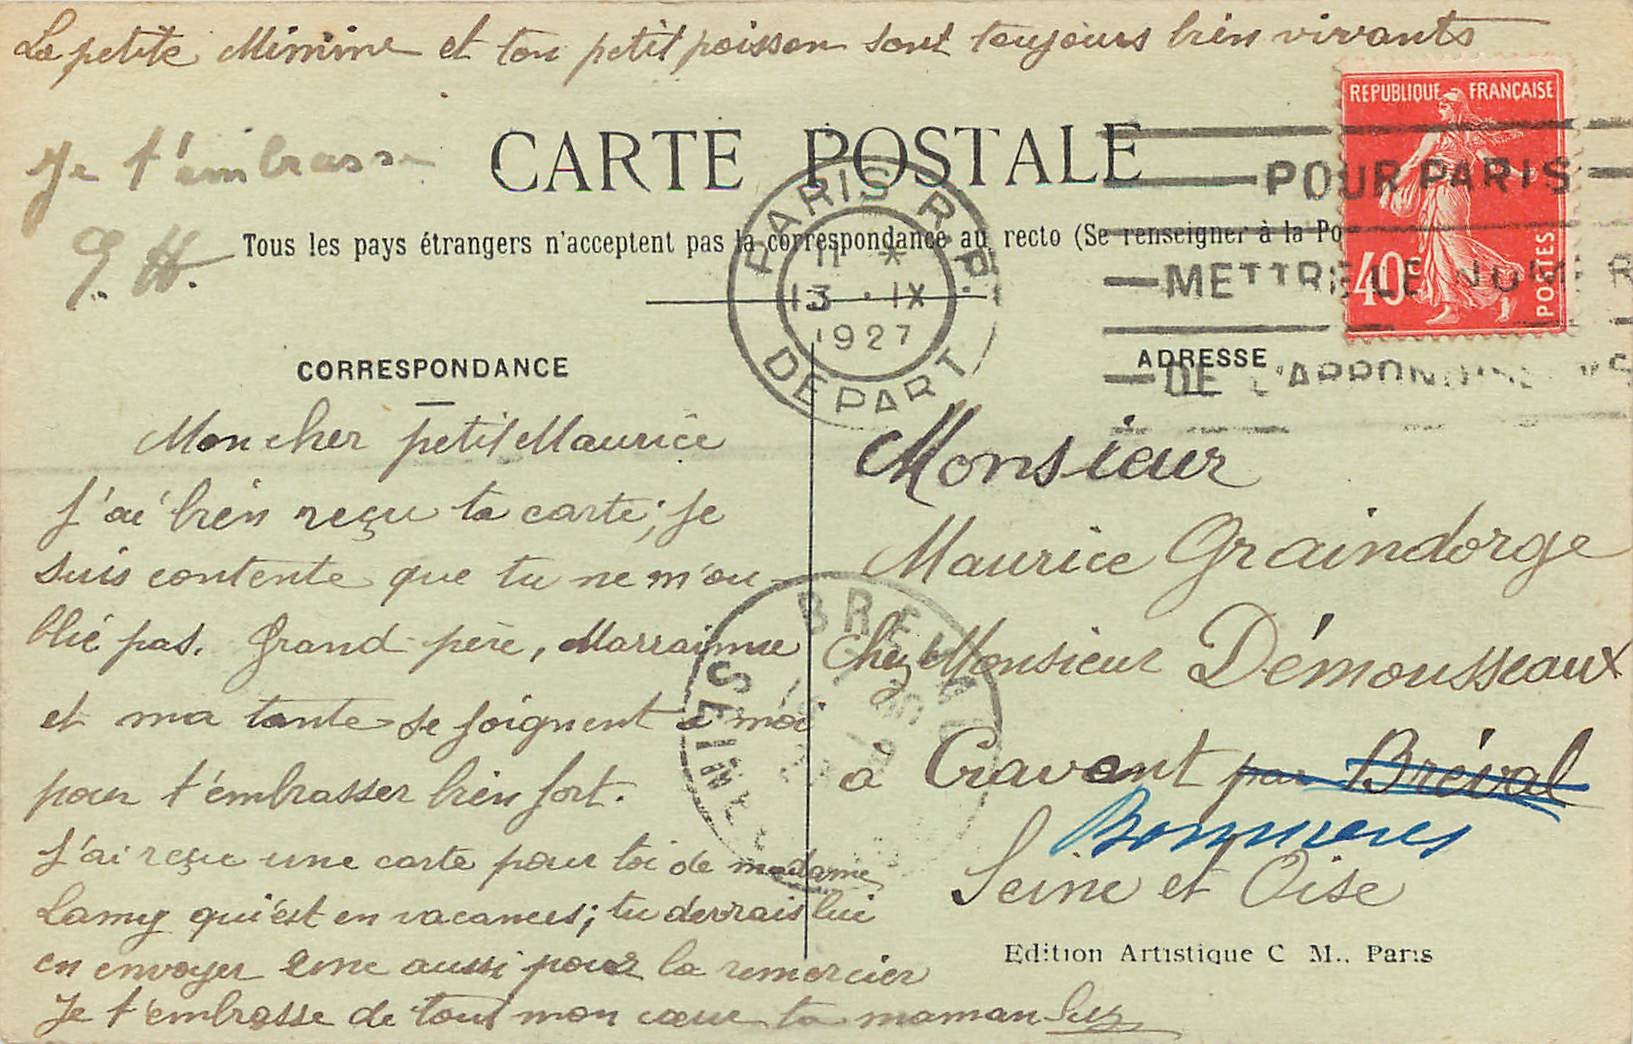 La petite Mimine et ton petit poisson sont toujours bien vivants
Je t'embrasse
G. H.
REPUBLIQUE FRANÇAISE
40c
POSTES
CARTE POSTALE
POUR PARIS
METTRE LE NUMER
DE L'ARRONDISS
Tous les pays étrangers n'acceptent pas la correspondance au recto (Se renseigner à la Po
PARIS R.P.
11 *
13 · IX
1927
DEPART
CORRESPONDANCE
Mon cher petit Maurice
J'ai bien reçu ta carte; je
suis contente que tu ne m'ou-
blié pas. Grand-père, Marraine
et ma tante se joignent à moi
pour t'embrasser bien fort.
J'ai reçue une carte pour toi de madame
Lamy qui est en vacances; tu devrais lui
en envoyer une aussi pour la remercier
Je t'embrasse de tout mon cœur ta maman
ADRESSE
Monsieur
Maurice Graindorge
chez Monsieur Démousseaux
à Cravent par Bréval
Bonnieres
Seine et Oise
BREVAL
SEINE
Edition Artistique C M., Paris